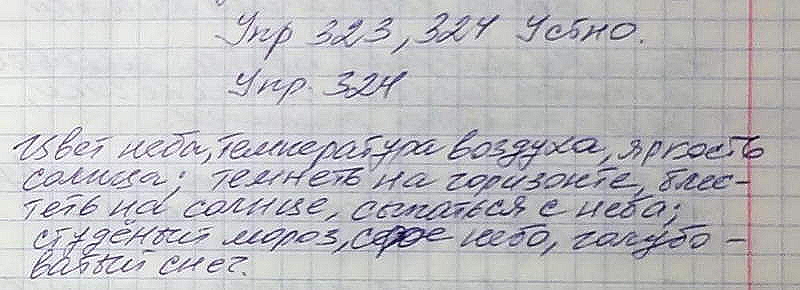 Упр 323, 324 Устно.
Упр. 324
Цвет неба, температура воздуха, яркость
солнца; темнеть на горизонте, блес-
теть на солнце, сыпаться с неба;
студёный мороз, серое небо, голубо-
ватый снег.